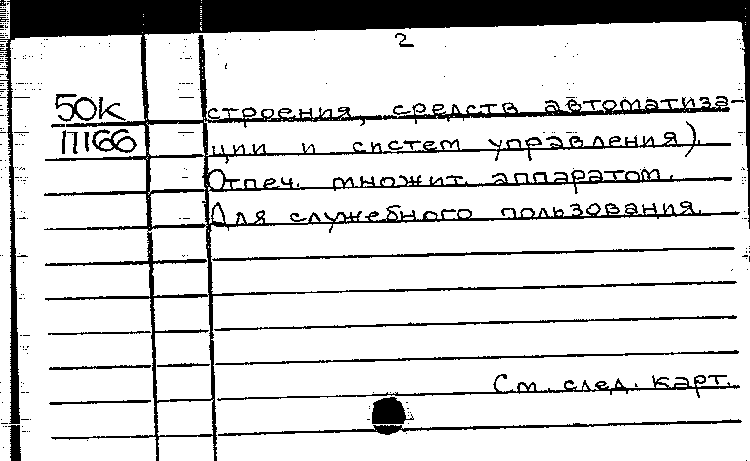 2
50к строения, средств автоматиза-
11166 ции и систем управления).
Отпеч. множит. аппаратом.
Для служебного пользования.
См. след. карт.